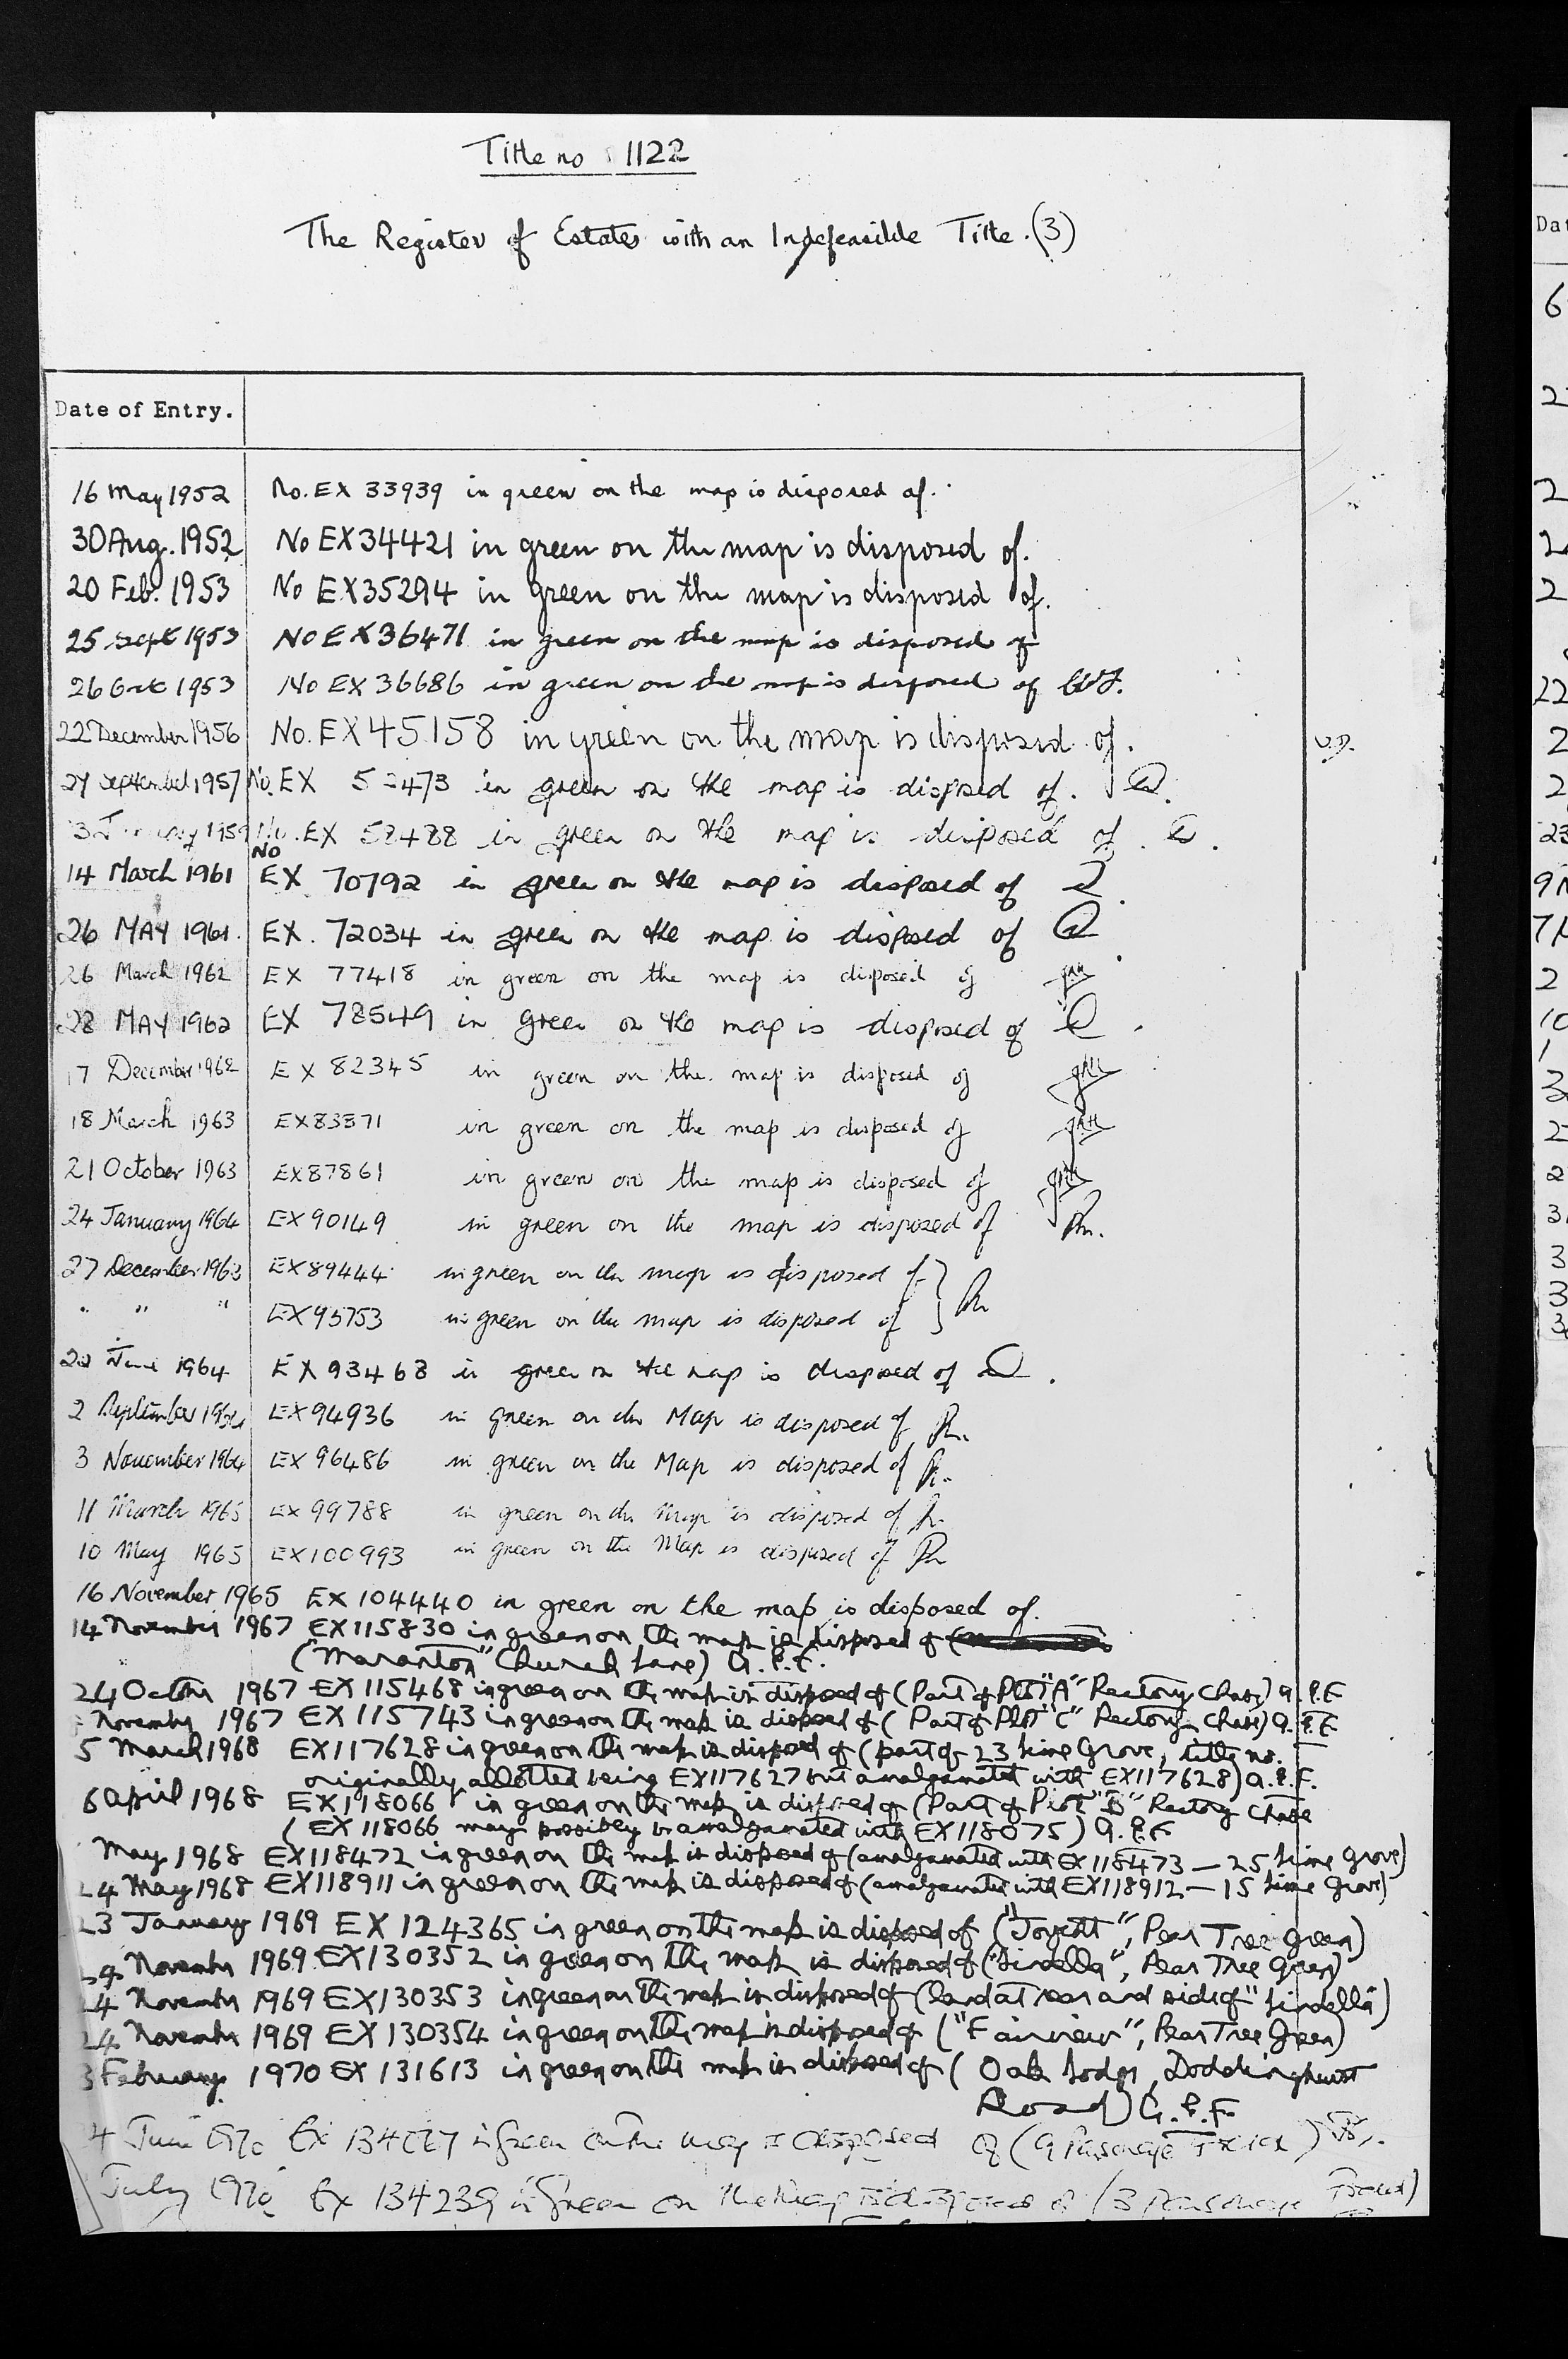 Title no 1122
The Register of Estates with an Indefeasible Title. (3)
Date of Entry.
16 May 1952 No. EX 33939 in green on the map is disposed of.
30 Aug. 1952 No EX34421 in green on the map is disposed of.
20 Feb. 1953 No EX35294 in green on the map is disposed of.
25 Sept 1953 No EX36471 in green on the map is disposed of
26 Oct 1953 No EX 36686 in green on the map is disposed of
22 December 1956 No. EX45158 in green on the map is disposed of.
27 September 1957 No. EX in green on the map is disposed of.
No. EX in green on the map is disposed of.
14 March 1961 No EX 70792 in green on the map is disposed of
26 MAY 1961. EX. 72034 in green on the map is disposed of
26 March 1962 EX 77418 in green on the map is disposed of
28 MAY 1962 EX 78549 in green on the map is disposed of
17 December 1962 EX 82345 in green on the map is disposed of
18 March 1963 in green on the map is disposed of
21 October 1963 EX87861 in green on the map is disposed of
24 January 1964 EX90149 in green on the map is disposed of
27 December 1963 EX89444 in green on the map is disposed of
" " " EX95753 in green on the map is disposed of
June 1964 EX93468 in green on the map is disposed of
2 September 1964 EX94936 in green on the Map is disposed of
3 November 1964 EX 96486 in green on the Map is disposed of
11 March 1965 EX 99788 in green on the Map is disposed of
10 May 1965 EX100993 in green on the Map is disposed of
16 November 1965 EX 104440 in green on the map is disposed of.
14 November 1967 EX115830 in green on the map is disposed of
("Maranton" Church Lane) G.P.F.
24 October 1967 EX 115468 in green on the map is disposed of (Part of Plot "A" Rectory Chase) G.P.F
November 1967 EX 115743 in green on the map is disposed of (Part of Plot "C" Rectory Chase) G.P.F.
5 March 1968 EX117628 in green on the map is disposed of (part of 23 Lime Grove, title no.
originally allotted being EX117627 but amalgamated with EX117628) G.P.F.
6 April 1968 EX118066 in green on the map is disposed of (Part of Plot "B" Rectory Chase
(EX 118066 may possibly be amalgamated with EX118075) G.P.F
May 1968 EX118472 in green on the map is disposed of (amalgamated with EX118473 — 25 Lime Grove)
24 May 1968 EX118911 in green on the map is disposed of (amalgamated with EX118912 — 15 Lime Grove)
23 January 1969 EX 124365 in green on the map is disposed of ("Joyett", Pear Tree Green)
24 November 1969 EX130352 in green on the map is disposed of ("Lindella", Pear Tree Green)
24 November 1969 EX130353 in green on the map is disposed of (land at rear and side of "Lindella")
24 November 1969 EX 130354 in green on the map is disposed of ("Fairview", Pear Tree Green)
3 February 1970 EX 131613 in green on the map is disposed of (Oak Lodge, Doddinghurst
Road) G.P.F.
4 June 1970 Ex in green on the map is disposed of (9 Parsonage Field)
July 1970 Ex 134239 in green on the map is disposed of (3 Parsonage Field)